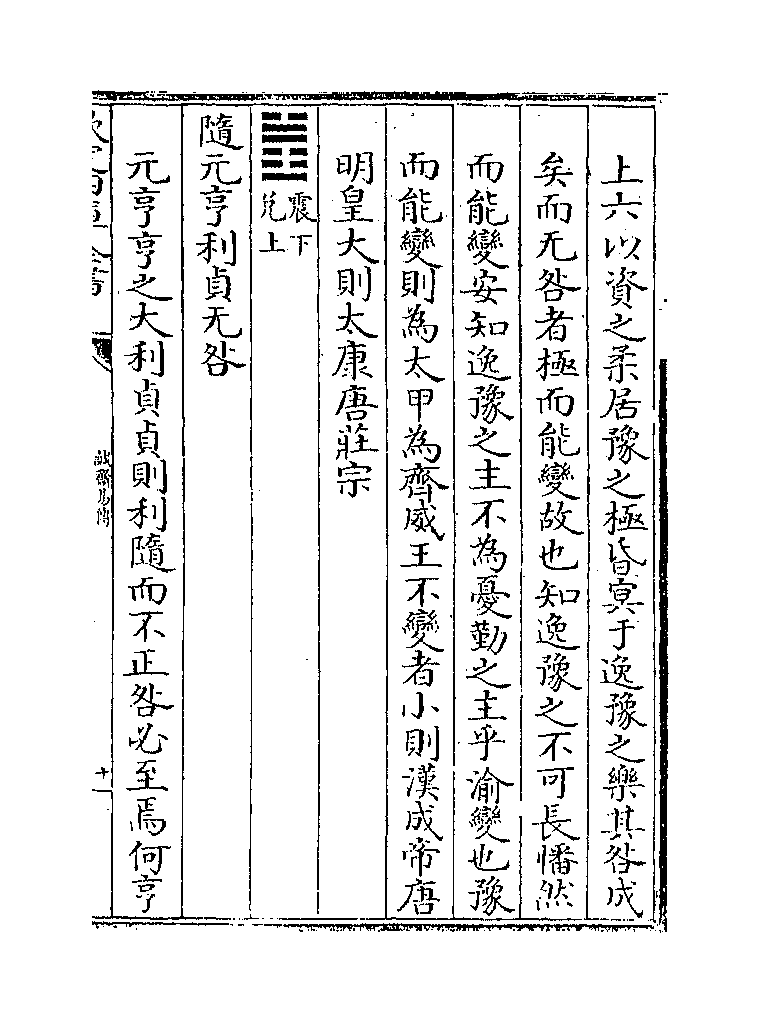 上六以資之柔居豫之極昏冥于逸豫之樂其咎成
矣而无咎者極而能變故也知逸豫之不可長憣然
而能變安知逸豫之主不為憂勤之主乎渝變也豫
而能變則為太甲為齊威王不變者小則漢成帝唐
明皇大則太康唐莊宗
震下
兌上
隨元亨利貞无咎
元亨亨之大利貞貞則利隨而不正咎必至焉何亨
欽定四庫全書
誠齋易傳
十一